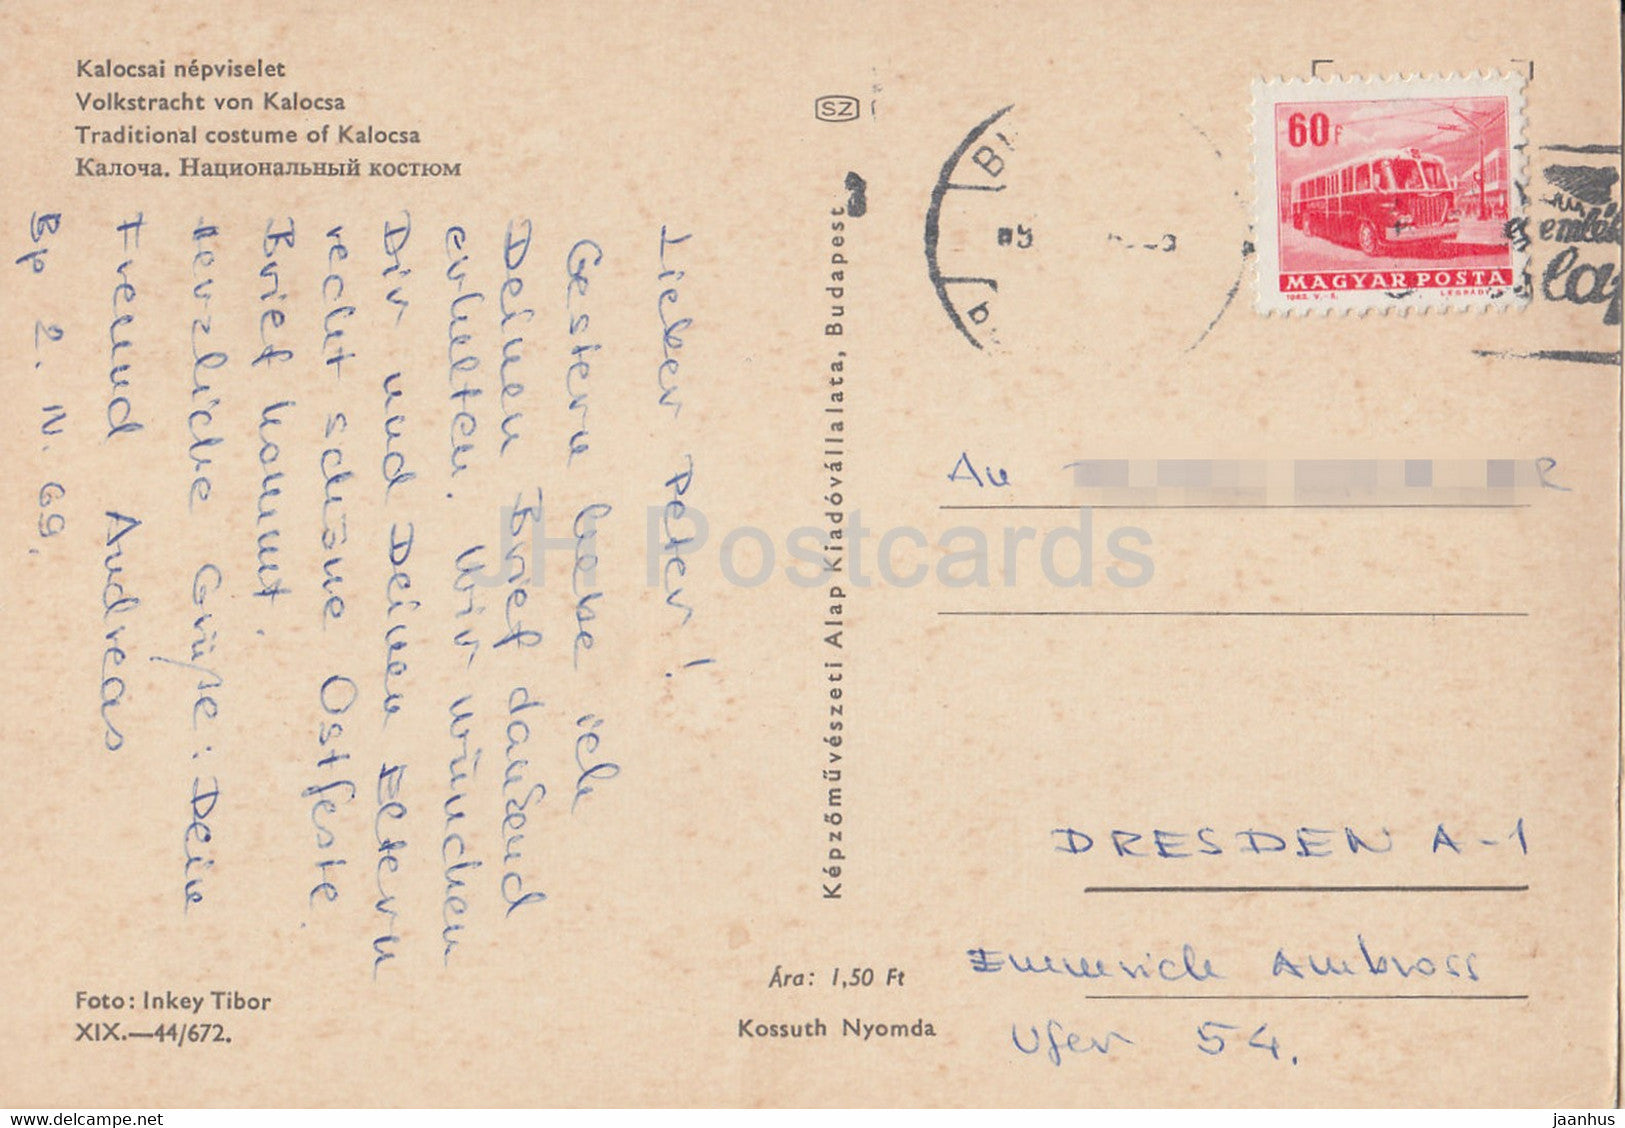 Kalocsai népviselet
Volkstracht von Kalocsa
Traditional costume of Kalocsa
Калоча. Национальный костюм
SZ
60f
MAGYAR POSTA
Lieber Peter!
Gestern habe ich
Deinen Brief dankend
erhalten. Wir wünchen
Dir und Deinen Eltern
recht schöne Ostfeste.
Brief kommt.
Herzliche Grüße: Dein
Freund Andreas
Bp 2. IV. 69.
Képzőművészeti Alap Kiadóvállalata, Budapest
An
DRESDEN A-1
Emmerich Ambross
Ufer 54.
Foto: Inkey Tibor
XIX.—44/672.
Ára: 1,50 Ft
Kossuth Nyomda
JH Postcards
www.delcampe.net
jaanhus